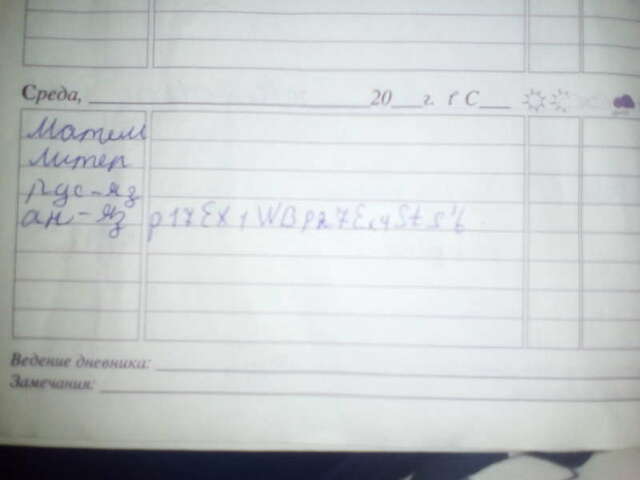 Среда, 20 г. t° C
Матем
Литер
Рус-яз
ан-яз p 17 EX 1 WB p 27
Ведение дневника:
Замечания: